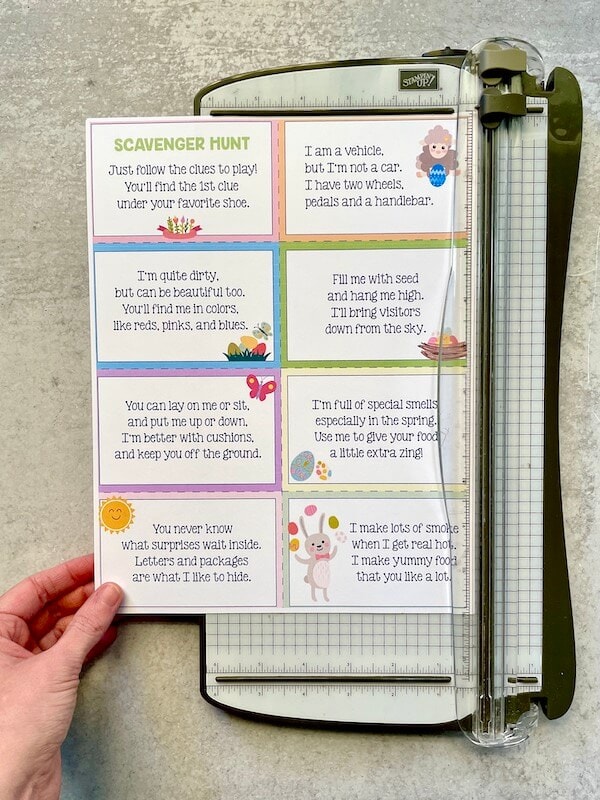 STAMPIN' UP!
SCAVENGER HUNT
Just follow the clues to play!
You'll find the 1st clue
under your favorite shoe.
I am a vehicle,
but I'm not a car.
I have two wheels,
pedals and a handlebar.
I'm quite dirty,
but can be beautiful too.
You'll find me in colors,
like reds, pinks, and blues.
Fill me with seed
and hang me high.
I'll bring visitors
down from the sky.
You can lay on me or sit,
and put me up or down,
I'm better with cushions,
and keep you off the ground.
I'm full of special smells
especially in the spring.
Use me to give your food
a little extra zing!
You never know
what surprises wait inside.
Letters and packages
are what I like to hide.
I make lots of smoke
when I get real hot.
I make yummy food
that you like a lot.